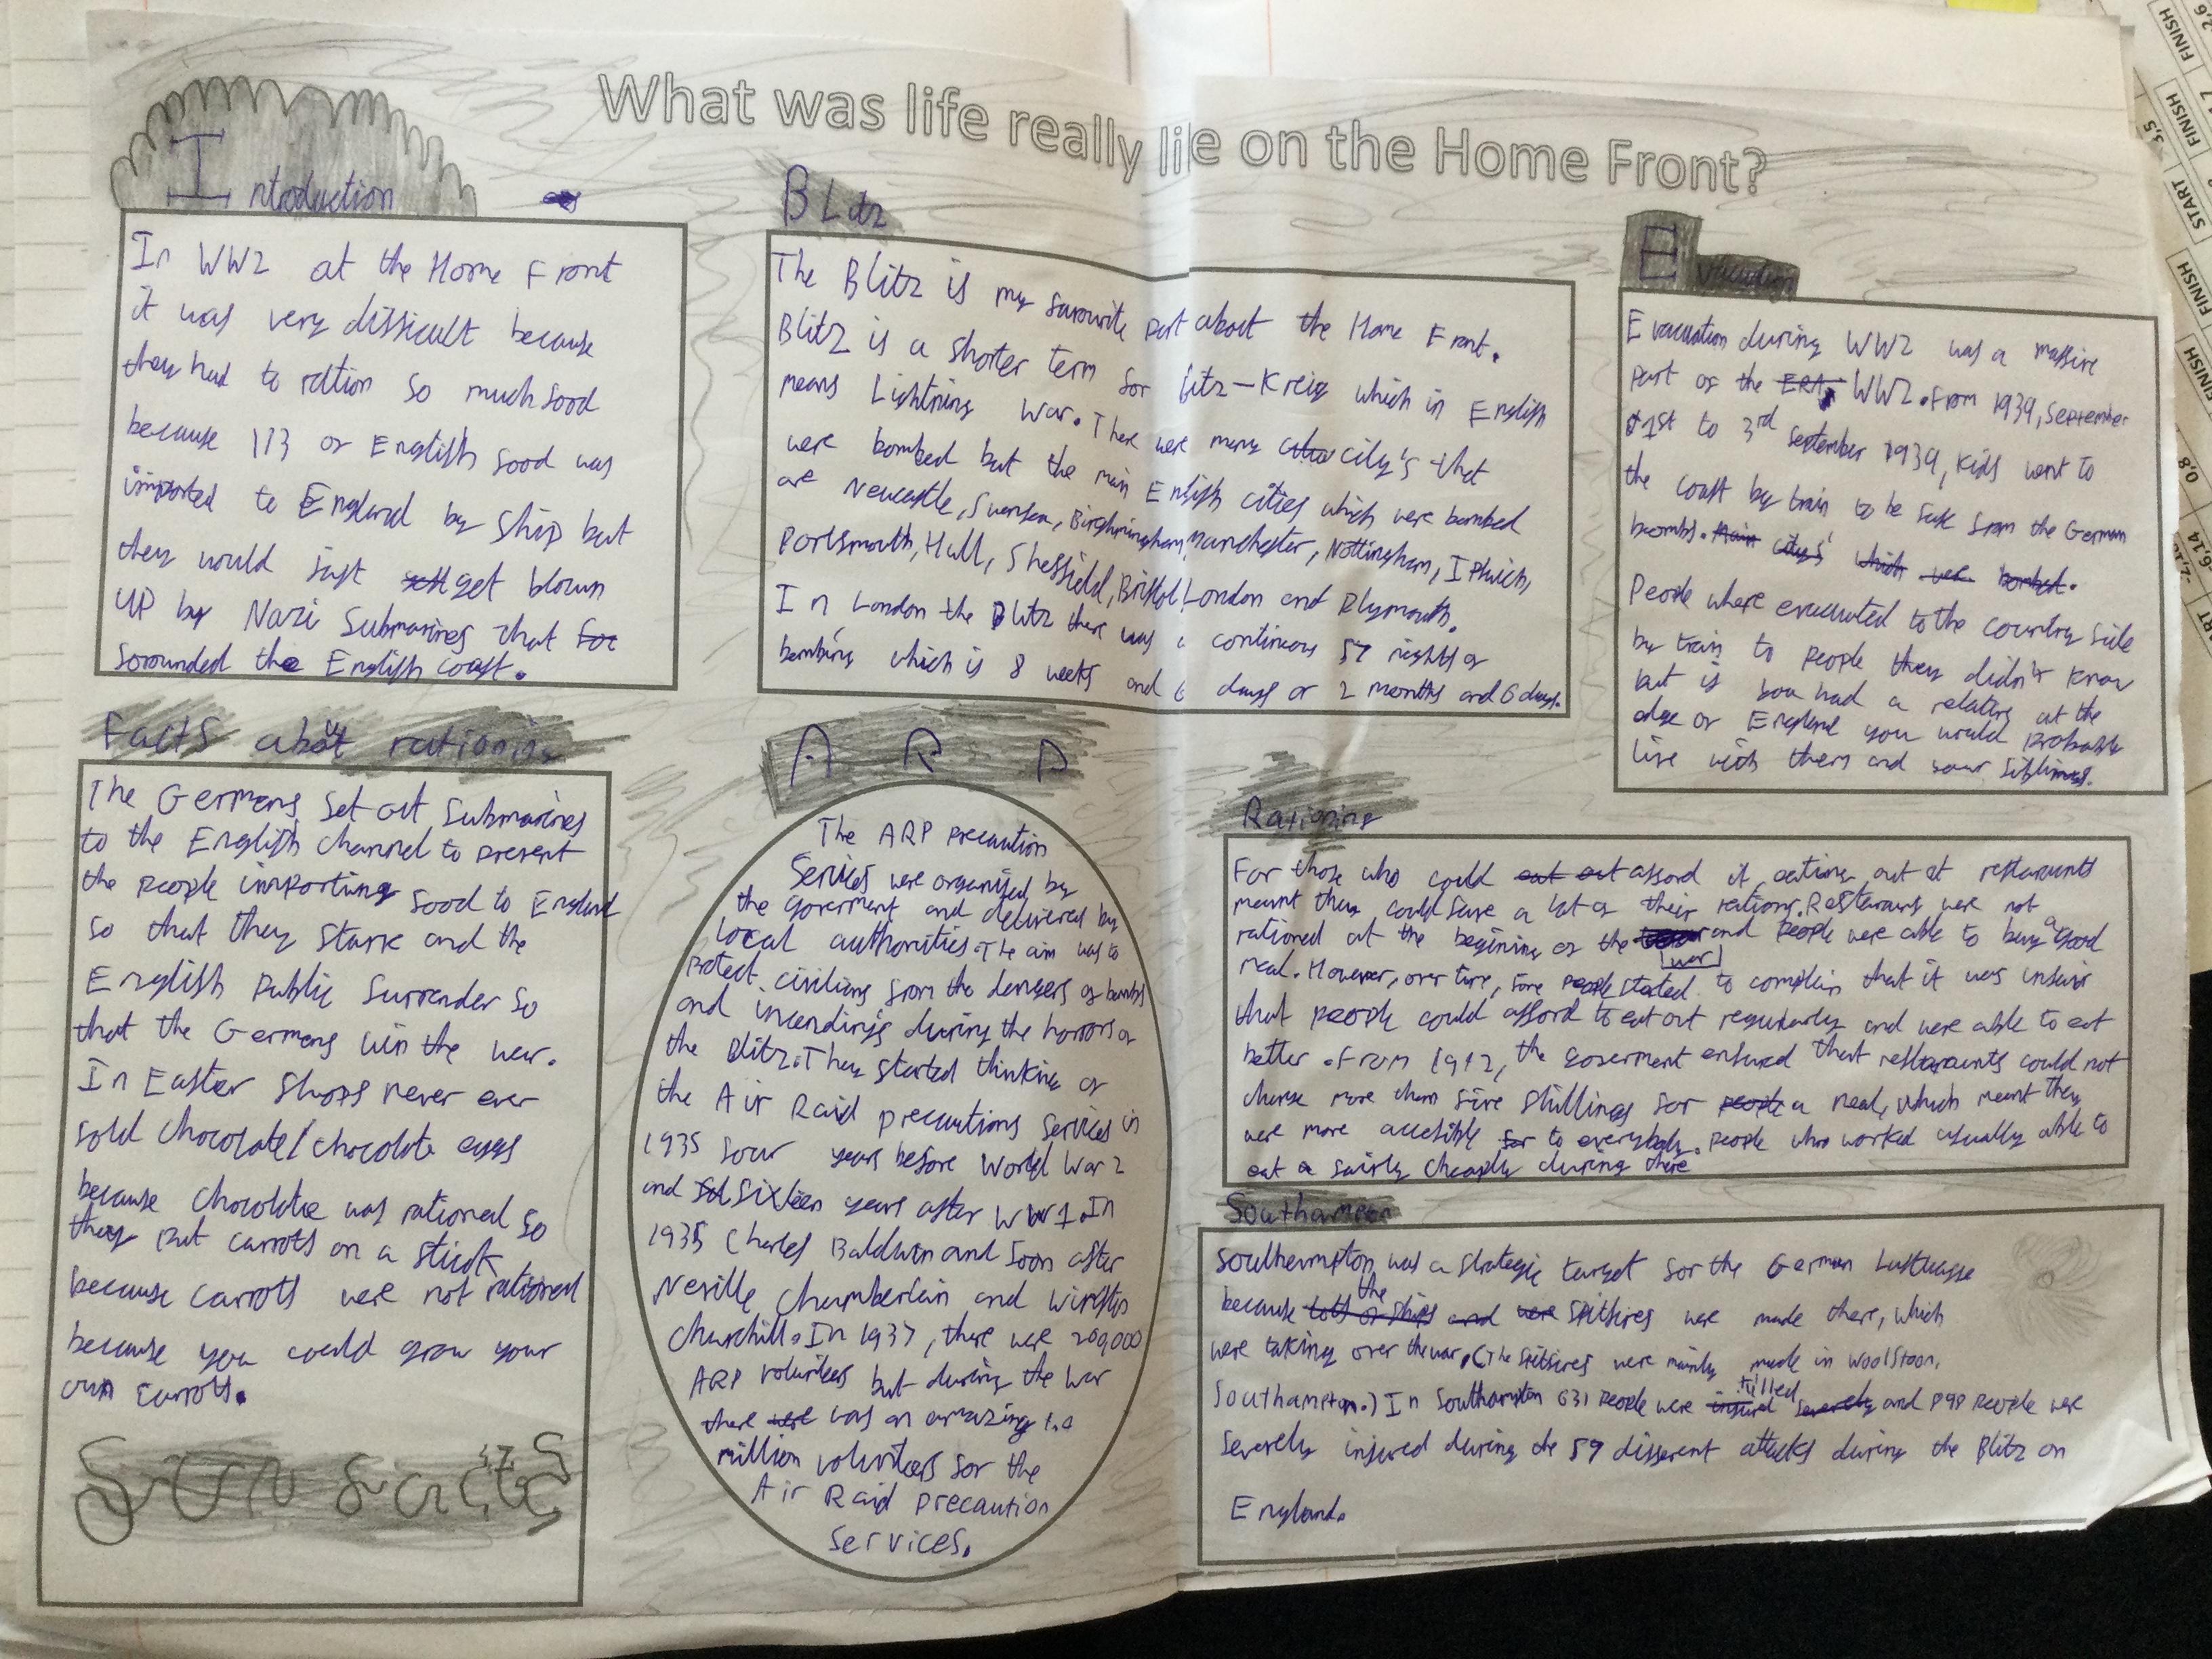 What was life really like on the Home Front?
Introduction
In WW2 at the Home Front
it was very difficult because
they had to ration so much food
because 1/3 of English food was
imported to England by ship but
they would just get blown
up by Nazi Submarines that for
sorounded the English coast.
Blitz
The Blitz is my favourite part about the Home Front.
Blitz is a shorter term for Litz-Kreig which in English
means Lightning War. There were many city's that
were bombed but the main English cities which were bombed
are Newcastle, Swansea, Birghmingham, Manchester, Nottingham, Ipwich,
Portsmouth, Hull, Sheffield, Bristol, London and Plymouth.
In London the Blitz there was a continous 57 nights of
bombing which is 8 weeks and 6 days or 2 months and 6 days.
Evacuation
Evacuation during WW2 was a massive
part of the ERA, WW2. From 1939, September
1st to 3rd September 1939, kids went to
the coast by train to be safe from the German
boombs. Main citys' which were bombed.
People where evacuated to the country side
by train to people they didn't know
but if you had a relative at the
edge of England you would probably
live with them and your siblings.
Facts about rationing
The Germans set out Submarines
to the English channel to prevent
the people importing food to England
so that they starve and the
English Public Surrender so
that the Germans win the war.
In Easter shops never ever
sold chocolate/chocolate eggs
because chocolate was rationed so
they put carrots on a stick
because carrots were not rationed
because you could grow your
own carrots.
Fun facts
A R P
The ARP precaution
Services were organised by
the goverment and delivered by
local authorities. The aim was to
protect civilians from the dangers of bombs
and incending's during the horrors of
the Blitz. They started thinking of
the Air Raid precautions services in
1935 four years before World War 2
and sixteen years after WW1. In
1935 Charles Baldwin and soon after
Neville Chamberlain and Winston
Churchill. In 1937, there were 200,000
ARP volunteers but during the war
there were was an amazing 1.4
million volunteers for the
Air Raid Precaution
Services.
Rationing
For those who could eat out afford it, eating out at restaraunts
meant they could save a lot of their rations. Restaraunts were not
rationed at the begining of the war and people were able to buy a good
meal. However, over time, some people stated to complain that it was unfair
that people could afford to eat out regularly and were able to eat
better. From 1942, the goverment ensured that restaraunts could not
charge more than five shillings for people a meal, which meant they
were more accesible for to everybody. People who worked usually able to
eat a fairly cheaply during there
Southampton
Southampton was a strategic target for the German Luftwaffe
because lots of ships and were the Spitfires were made there, which
were taking over the war. (The Spitfires were mainly made in Woolston,
Southampton.) In Southampton 631 people were injured killed severely and 898 people were
severely injured during the 57 different attacks during the Blitz on
England.
START
FINISH
FINISH
FINISH
FINISH
3,5
0,8
-6,14